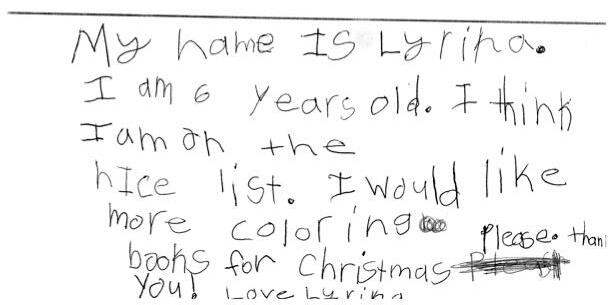 My name IS Lyrina.
I am 6 years old. I think
I am on the
nIce list. I would like
more coloring
books for Christmas Please. than
You! Love Lyrina